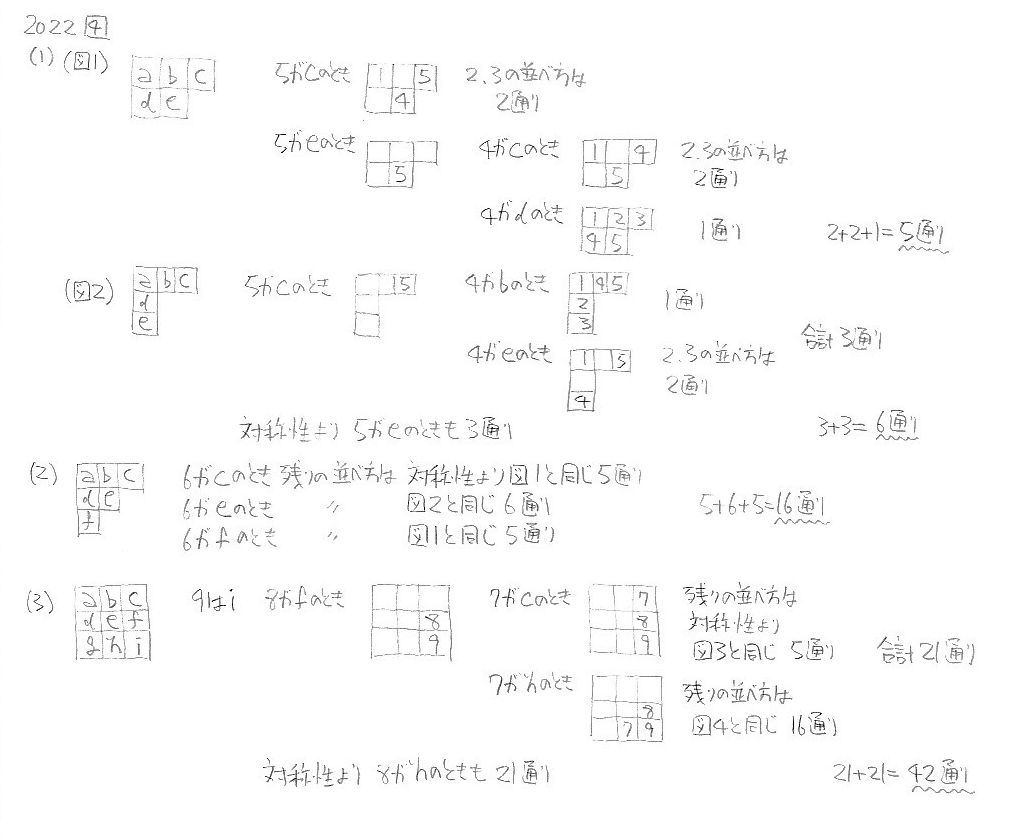 2022 4
(1) (図1) a b c
d e
5がcのとき 1 5
4
2.3の並べ方は
2通り
5がeのとき 5
4がcのとき 1 4
5
2.3の並べ方は
2通り
4がdのとき 1 2 3
4 5
1通り 2+2+1=5通り
(図2) a b c
d
e
5がcのとき 5
4がbのとき 1 4 5
2
3
1通り
4がeのとき 1 5
4
2.3の並べ方は
2通り
合計3通り
対称性より 5がeのときも3通り 3+3=6通り
(2) a b c
d e
f
6がcのとき 残りの並べ方は 対称性より図1と同じ5通り
6がeのとき 〃 図2と同じ6通り
6がfのとき 〃 図1と同じ5通り
5+6+5=16通り
(3) a b c
d e f
g h i
9はi 8がfのとき 8
9
7がcのとき 7
8
9
残りの並べ方は
対称性より
図3と同じ 5通り
7がhのとき 8
7 9
残りの並べ方は
図4と同じ 16通り
合計21通り
対称性より 8がhのときも21通り 21+21=42通り